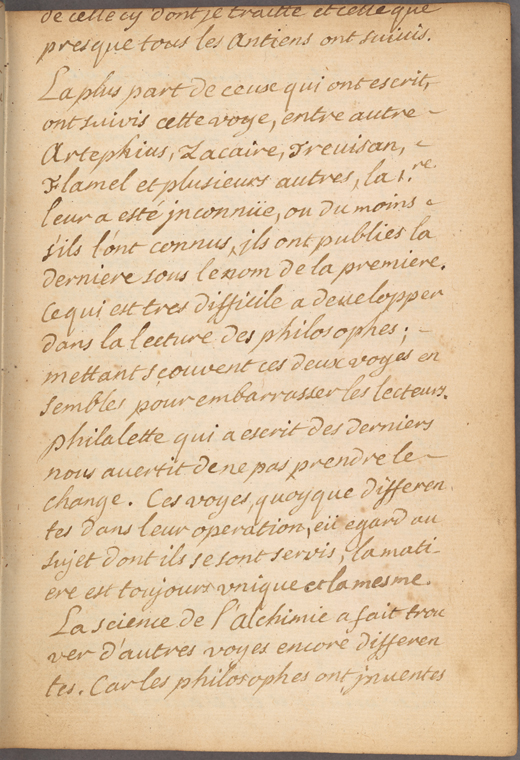 de celle cy dont je traitte et celle que
presque tous les Antiens ont suivis.
La plus part de ceux qui ont escrit,
ont suivis cette voye, entre autre -
Artephius, Zacaire, Trevisan, -
Flamel et plusieurs autres, la 1.re
leur a esté jnconnüe, ou du moins -
s'ils l'ont connus, jls ont publies la
derniere sous le nom de la premiere.
Ce qui est tres difficile a developper
dans la lecture des philosophes; -
mettant scouvent ces deux voyes en
sembles pour embarrasser les lecteurs.
philalette qui a escrit des derniers
nous avertit de ne pas prendre le -
change. Ces voyes, quoyque differen
tes dans leur operation, eü egard au
sujet dont ils se sont servis, la mati-
ere est toujours vnique et la mesme.
La science de l'Alchimie a fait trou
ver d'autres voyes encore differen
tes. Car les philosophes ont jnventes